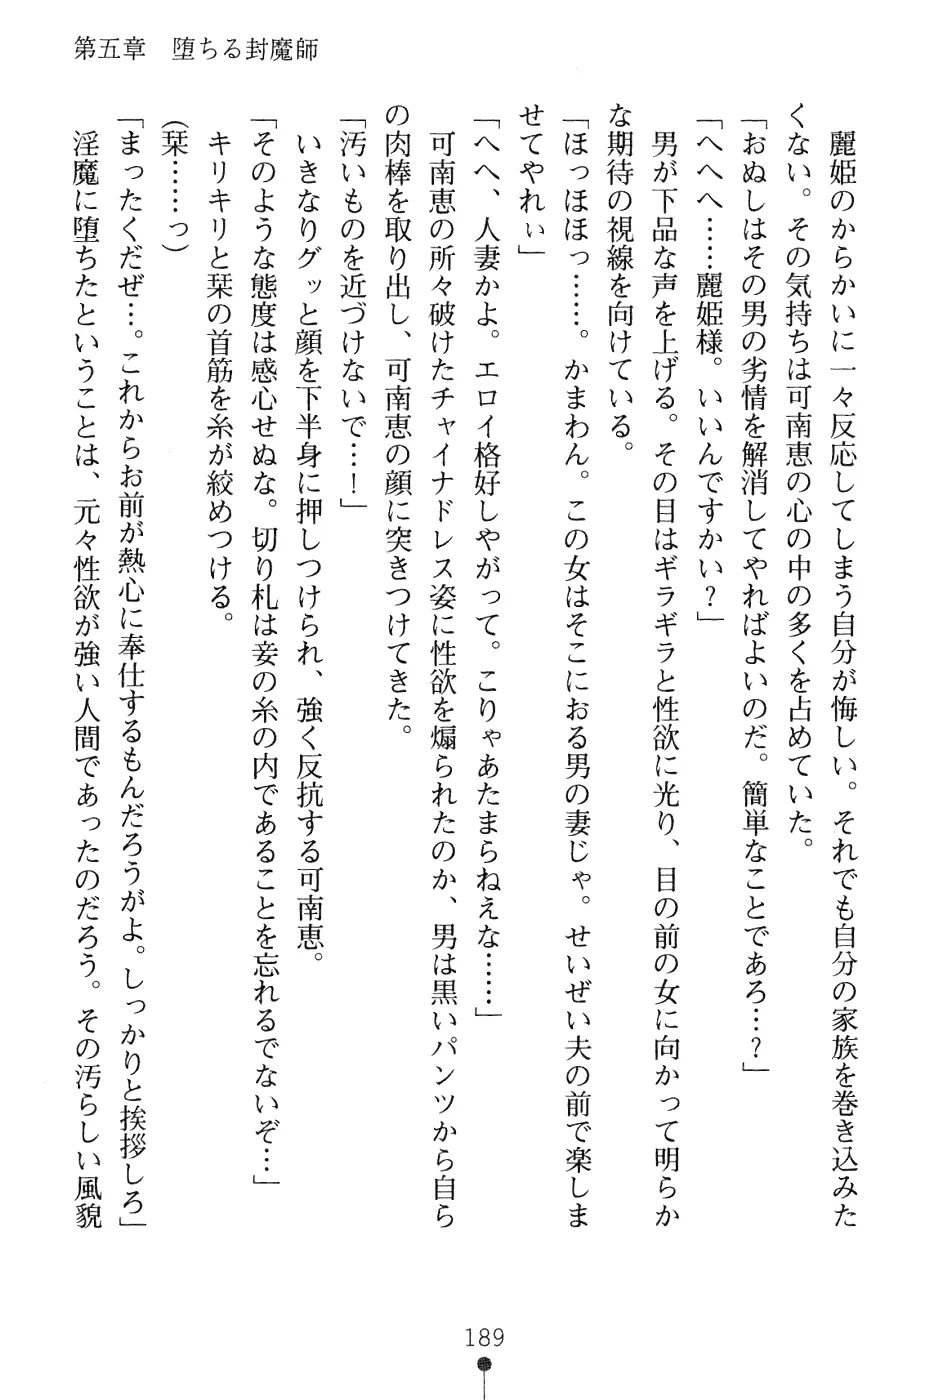 第五章　堕ちる封魔師
　麗姫のからかいに一々反応してしまう自分が悔しい。それでも自分の家族を巻き込みた
くない。その気持ちは可南恵の心の中の多くを占めていた。
「おぬしはその男の劣情を解消してやればよいのだ。簡単なことであろ…？」
「へへへ……麗姫様。いいんですかい？」
　男が下品な声を上げる。その目はギラギラと性欲に光り、目の前の女に向かって明らか
な期待の視線を向けている。
「ほっほほっ……。かまわん。この女はそこにおる男の妻じゃ。せいぜい夫の前で楽しま
せてやれぃ」
「へへ、人妻かよ。エロイ格好しやがって。こりゃあたまらねえな……」
　可南恵の所々破けたチャイナドレス姿に性欲を煽られたのか、男は黒いパンツから自ら
の肉棒を取り出し、可南恵の顔に突きつけてきた。
「汚いものを近づけないで…！」
　いきなりグッと顔を下半身に押しつけられ、強く反抗する可南恵。
「そのような態度は感心せぬな。切り札は妾の糸の内であることを忘れるでないぞ…」
　キリキリと栞の首筋を糸が絞めつける。
（栞……っ）
「まったくだぜ…。これからお前が熱心に奉仕するもんだろうがよ。しっかりと挨拶しろ」
　淫魔に堕ちたということは、元々性欲が強い人間であったのだろう。その汚らしい風貌
189